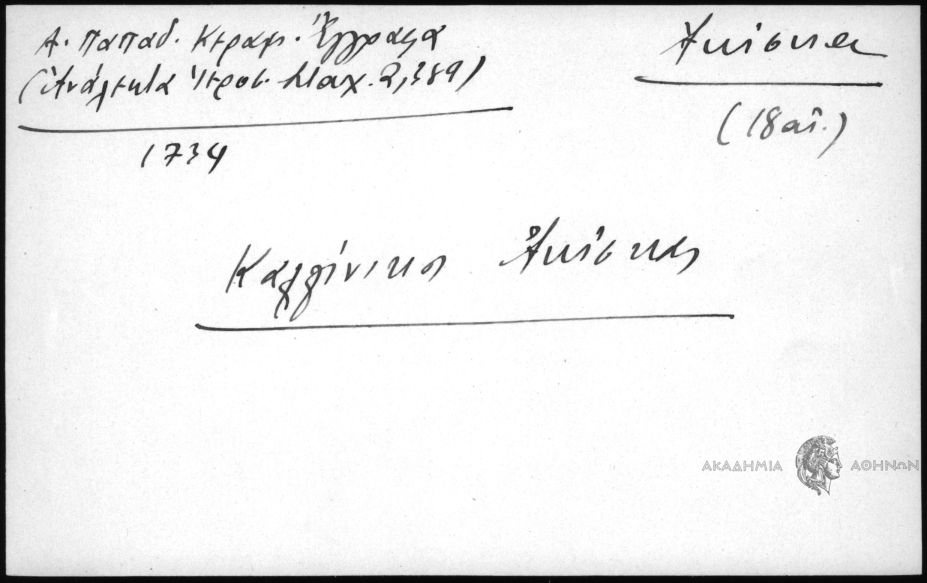 Α. Παπαδ. Κεραμ. Ἔγγραφα
(Ἀνάλεκτα Ἱεροσ. Σταχ. 2, 389)
Ἀκίσκα
(18 αἰ.)
1734
Καλλίνικος Ἀκίσκας
ΑΚΑΔΗΜΙΑ ΑΘΗΝΩΝ